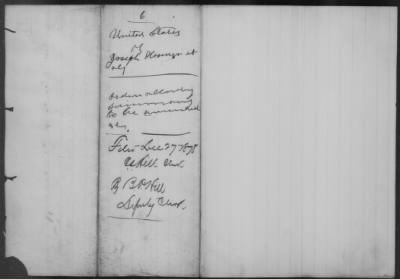 6
United States
vs
Joseph et
al
Order allowing
to be amended
&c.
Filed Dec 27 1878
Clk
By B Hill
Deputy Clerk